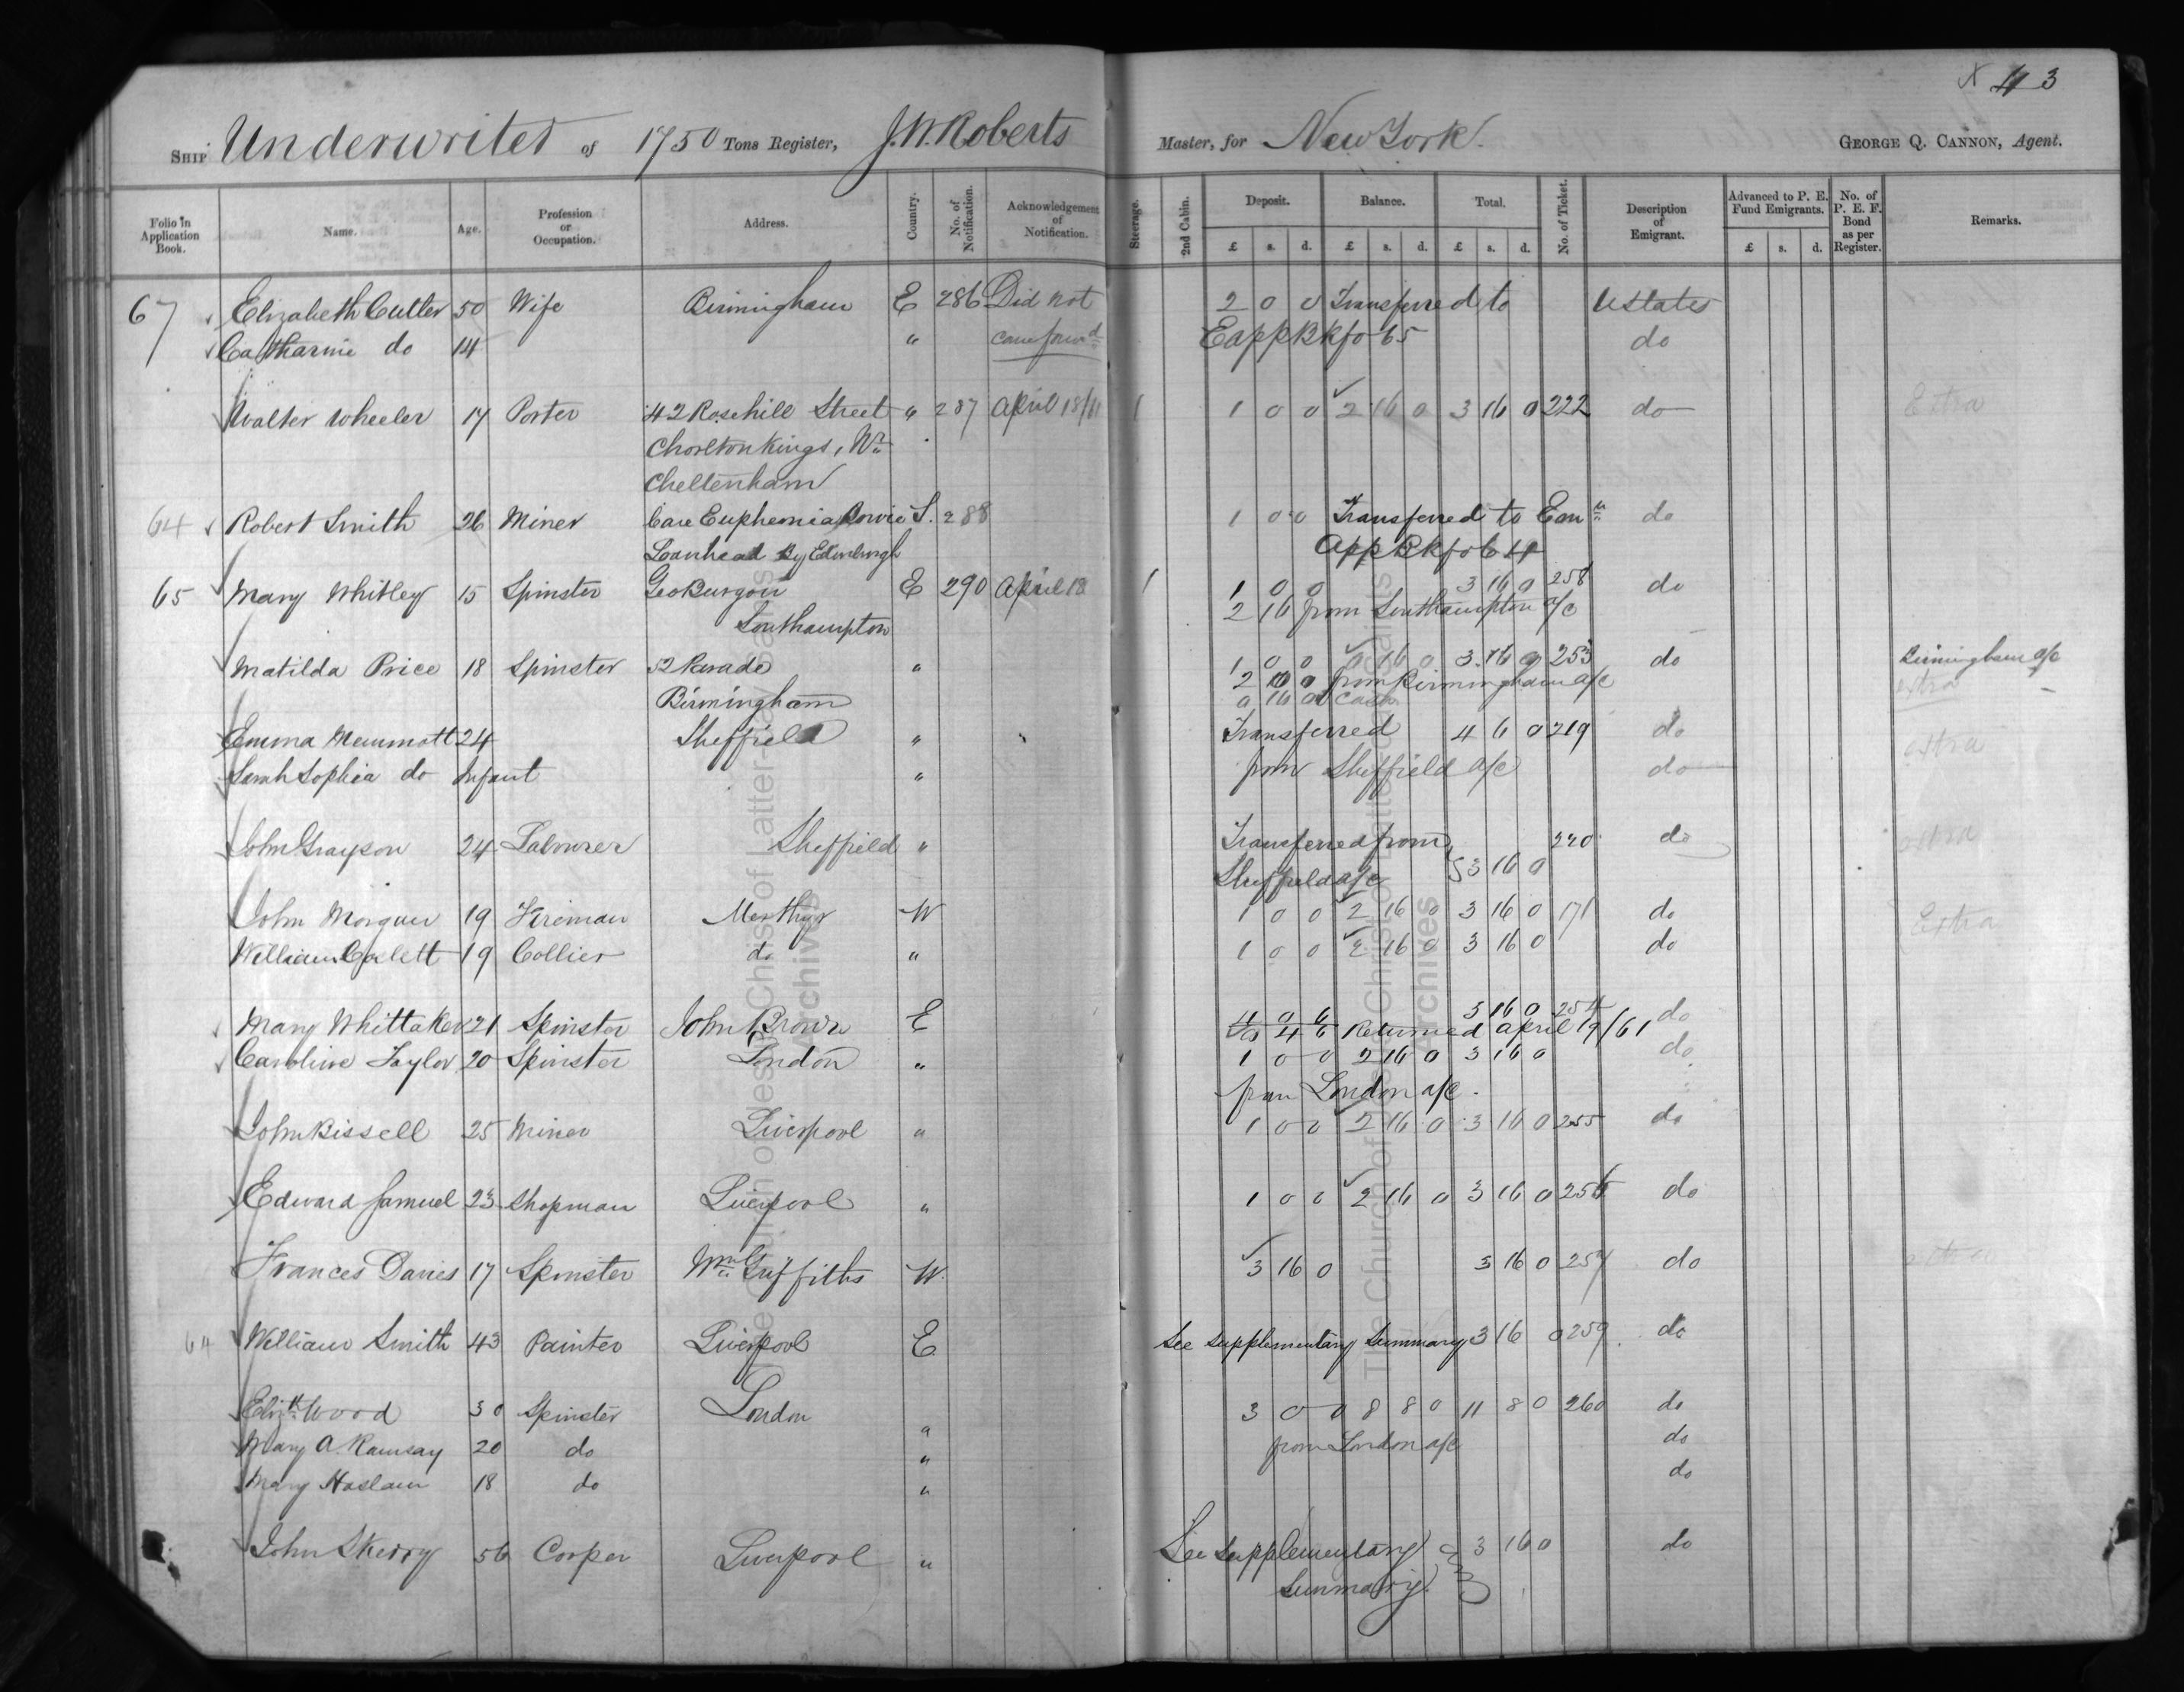 X 43
SHIP Underwriter of 1750 Tons Register, J.W. Roberts Master, for New York. GEORGE Q. CANNON, Agent.
Folio in Application Book. Name. Age. Profession or Occupation. Address. Country. No. of Notification. Acknowledgement of Notification. Steerage. 2nd Cabin. Deposit. Balance. Total. No. of Ticket. Description of Emigrant. Advanced to P. E. Fund Emigrants. No. of P. E. F. Bond as per Register. Remarks.
£ s. d. £ s. d. £ s. d. £ s. d.
67 Elizabeth Cutler 50 Wife Birmingham E 286 Did not 2 0 0 Transferred to UStates
Catharine do 14 " come forwd E app Bk fo 65 do
Walter Wheeler 17 Porter 42 Rosehill Street " 287 April 18/61 1 1 0 0 2 16 0 3 16 0 222 do Extra
Charlton Kings, Nr
Cheltenham
64 Robert Smith 26 Miner Care Euphemia Bowie S. 288 1 0 0 Transferred to Emn do
Loanhead By Edinburgh App Bk fo 64
65 Mary Whitley 15 Spinster Geo Burgon E 290 April 18 1 1 0 0 3 16 0 258 do
Southampton 2 16 from Southampton a/c
Matilda Price 18 Spinster 52 Parade " 1 0 0 0 16 0 3 16 0 253 do Birmingham a/c
Birmingham 2 0 0 from Birmingham a/c extra
0 16 0 cash
Emma Memmott 24 Sheffield " Transferred 4 6 0 219 do extra
Sarah Sophia do Infant " from Sheffield a/c do
John Grayson 24 Labourer Sheffield " Transferred from 220 do extra
Sheffield a/c 3 16 0
John Morgan 19 Fireman Merthyr W 1 0 0 2 16 0 3 16 0 171 do Extra
William 19 Collier do " 1 0 0 2 16 0 3 16 0 do
Mary Whittaker 21 Spinster John Brown E 4 0 6 3 16 0 254 do
4 6 Returned April 19/61
Caroline Taylor 20 Spinster London " 1 0 0 2 16 0 3 16 0 do
from London a/c.
John Bissell 25 Miner Liverpool " 1 0 0 2 16 0 3 16 0 255 do
Edward Samuel 23 Shopman Liverpool " 1 0 0 2 16 0 3 16 0 256 do
Frances Davies 17 Spinster Wm Griffiths W. 3 16 0 3 16 0 257 do extra
64 William Smith 43 Painter Liverpool E See supplementary Summary 3 16 0 259 do
Elizth Wood 30 Spinster London " 3 0 0 8 8 0 11 8 0 260 do
Mary A. Ramsay 20 do " from London a/c do
Mary Haslam 18 do " do
John Sherry 56 Cooper Liverpool " See supplementary 3 16 0 do
Summary
The Church of Jesus Christ of Latter-day Saints
Archives
The Church of Jesus Christ of Latter-day Saints
Archives